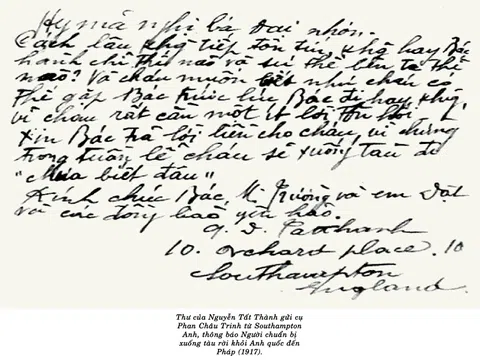 Hy mã nghi bá đại nhơn.
Cách lâu không tiếp đồn tin, không hay Bác
hành chỉ thế nào và sự thế bên ta thế
nào? Và cháu muốn biết như cháu có
thể gặp Bác trước lúc Bác đi hay không,
vì cháu rất cần một ít lời
Xin Bác trả lời liền cho cháu, vì chừng
trong tuần lễ cháu sẽ xuống tàu đi
"chưa biết đâu"
Kính chúc Bác, M. Trường và em Dật
và các đồng bào yên hảo.
N. T. Tatthanh
10. orchard place. 10
Southampton
England.
Thư của Nguyễn Tất Thành gửi cụ
Phan Châu Trinh từ Southampton
Anh, thông báo Người chuẩn bị
xuống tàu rời khỏi Anh quốc đến
Pháp (1917).